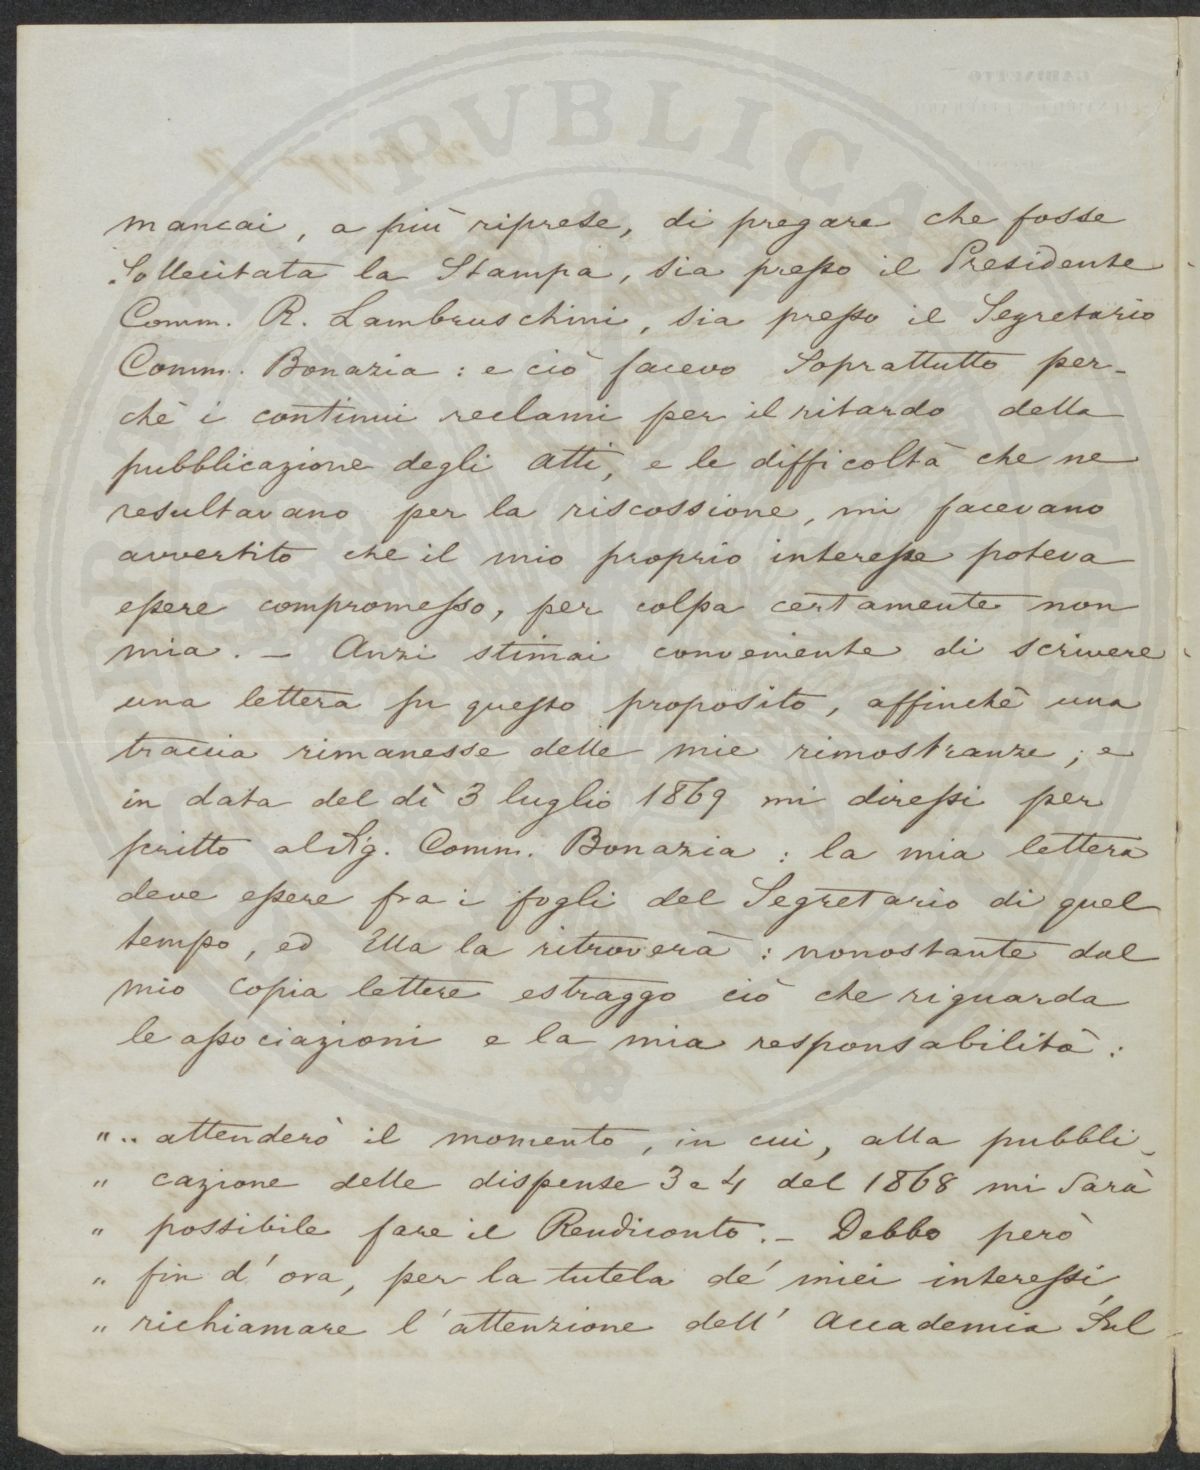 mancai, a più riprese, di pregare che fosse
sollecitata la Stampa, sia presso il Presidente
Comm. R. Lambruschini, sia presso il Segretario
Comm. Bonazia: e ciò facevo soprattutto per-
chè i continui reclami per il ritardo della
pubblicazione degli atti, e le difficoltà che ne
resultavano per la riscossione, mi facevano
avvertito che il mio proprio interesse poteva
essere compromesso, per colpa certamente non
mia. – Anzi stimai conveniente di scrivere
una lettera su questo proposito, affinchè una
traccia rimanesse delle mie rimostranze; e
in data del dì 3 luglio 1869 mi diressi per
scritto al Sig. Comm. Bonazia: la mia lettera
deve essere fra i fogli del Segretario di quel
tempo, ed Ella la ritroverà: nonostante dal
mio copia lettere estraggo ciò che riguarda
le associazioni e la mia responsabilità:
".. attenderò il momento, in cui, alla pubbli-
" cazione delle dispense 3 e 4 del 1868 mi sarà
" possibile fare il Rendiconto. – Debbo però
" fin d'ora, per la tutela de' miei interessi,
" richiamare l'attenzione dell'Accademia sul
PVBLICA